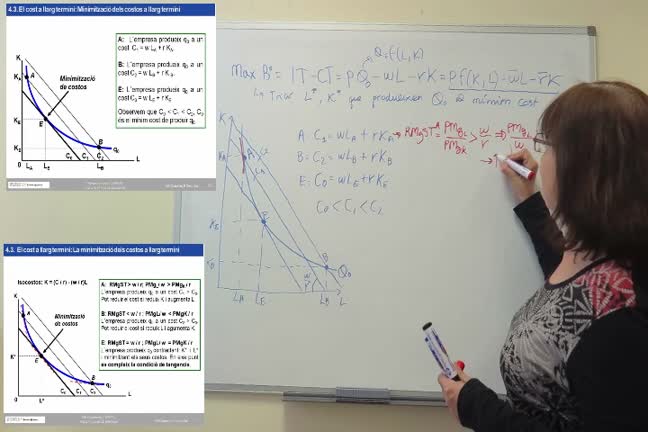 4.3. El cost a llarg termini: Minimització dels costos a llarg termini
K
K_A
A
Minimització
de costos
K_E
E
K_B
B
q_0
L_A
L_E
C_0
C_1
C_2
L_B
L
A: L'empresa produeix q_0 a un
cost C_1 = w L_A + r K_A
B: L'empresa produeix q_0 a un
cost C_2 = w L_B + r K_B
E: L'empresa produeix q_0 a un
cost C_0 = w L_E + r K_E
Observem que C_0 < C_1 < C_2, C_0
és el mínim cost de produir q_0
4.3. El cost a llarg termini: La minimització dels costos a llarg termini
Isocostos: K = (C / r) - (w / r)L
K
A
Minimització
de costos
K*
E
B
q_0
L*
C_0
C_1
C_2
L
A: RMgST > w / r; PMg_L / w > PMg_K / r
L'empresa produeix q_0 a un cost C_1 > C_0
Pot reduir el cost si redueix K i augmenta L
B: RMgST < w / r; PMg_L / w < PMg_K / r
L'empresa produeix q_0 a un cost C_2 > C_0
Pot reduir el cost si redueix L i augmenta K
E: RMgST = w / r; PMg_L / w = PMg_K / r
L'empresa produeix q_0 contractant K* i L*
i minimitzant els seus costos. En eixe punt
es compleix la condició de tangència.
Q=f(L,K)
Max B^o = IT - CT = pQ_0 - wL - rK = pf(K,L) - wL - rK
L*, K* que produeixen Q_0 a mínim cost
A C_1 = wL_A + rK_A → RMgST^A = PMg_L / PMg_K > w/r ⇒ PMg_L / w
B: C_2 = wL_B + rK_B
E: C_0 = wL_E + rK_E
C_0 < C_1 < C_2
K
K_A
A
C_2
C_1
K_E
E
K_B
B
Q_0
w
r
L_A
L_E
L_B
L